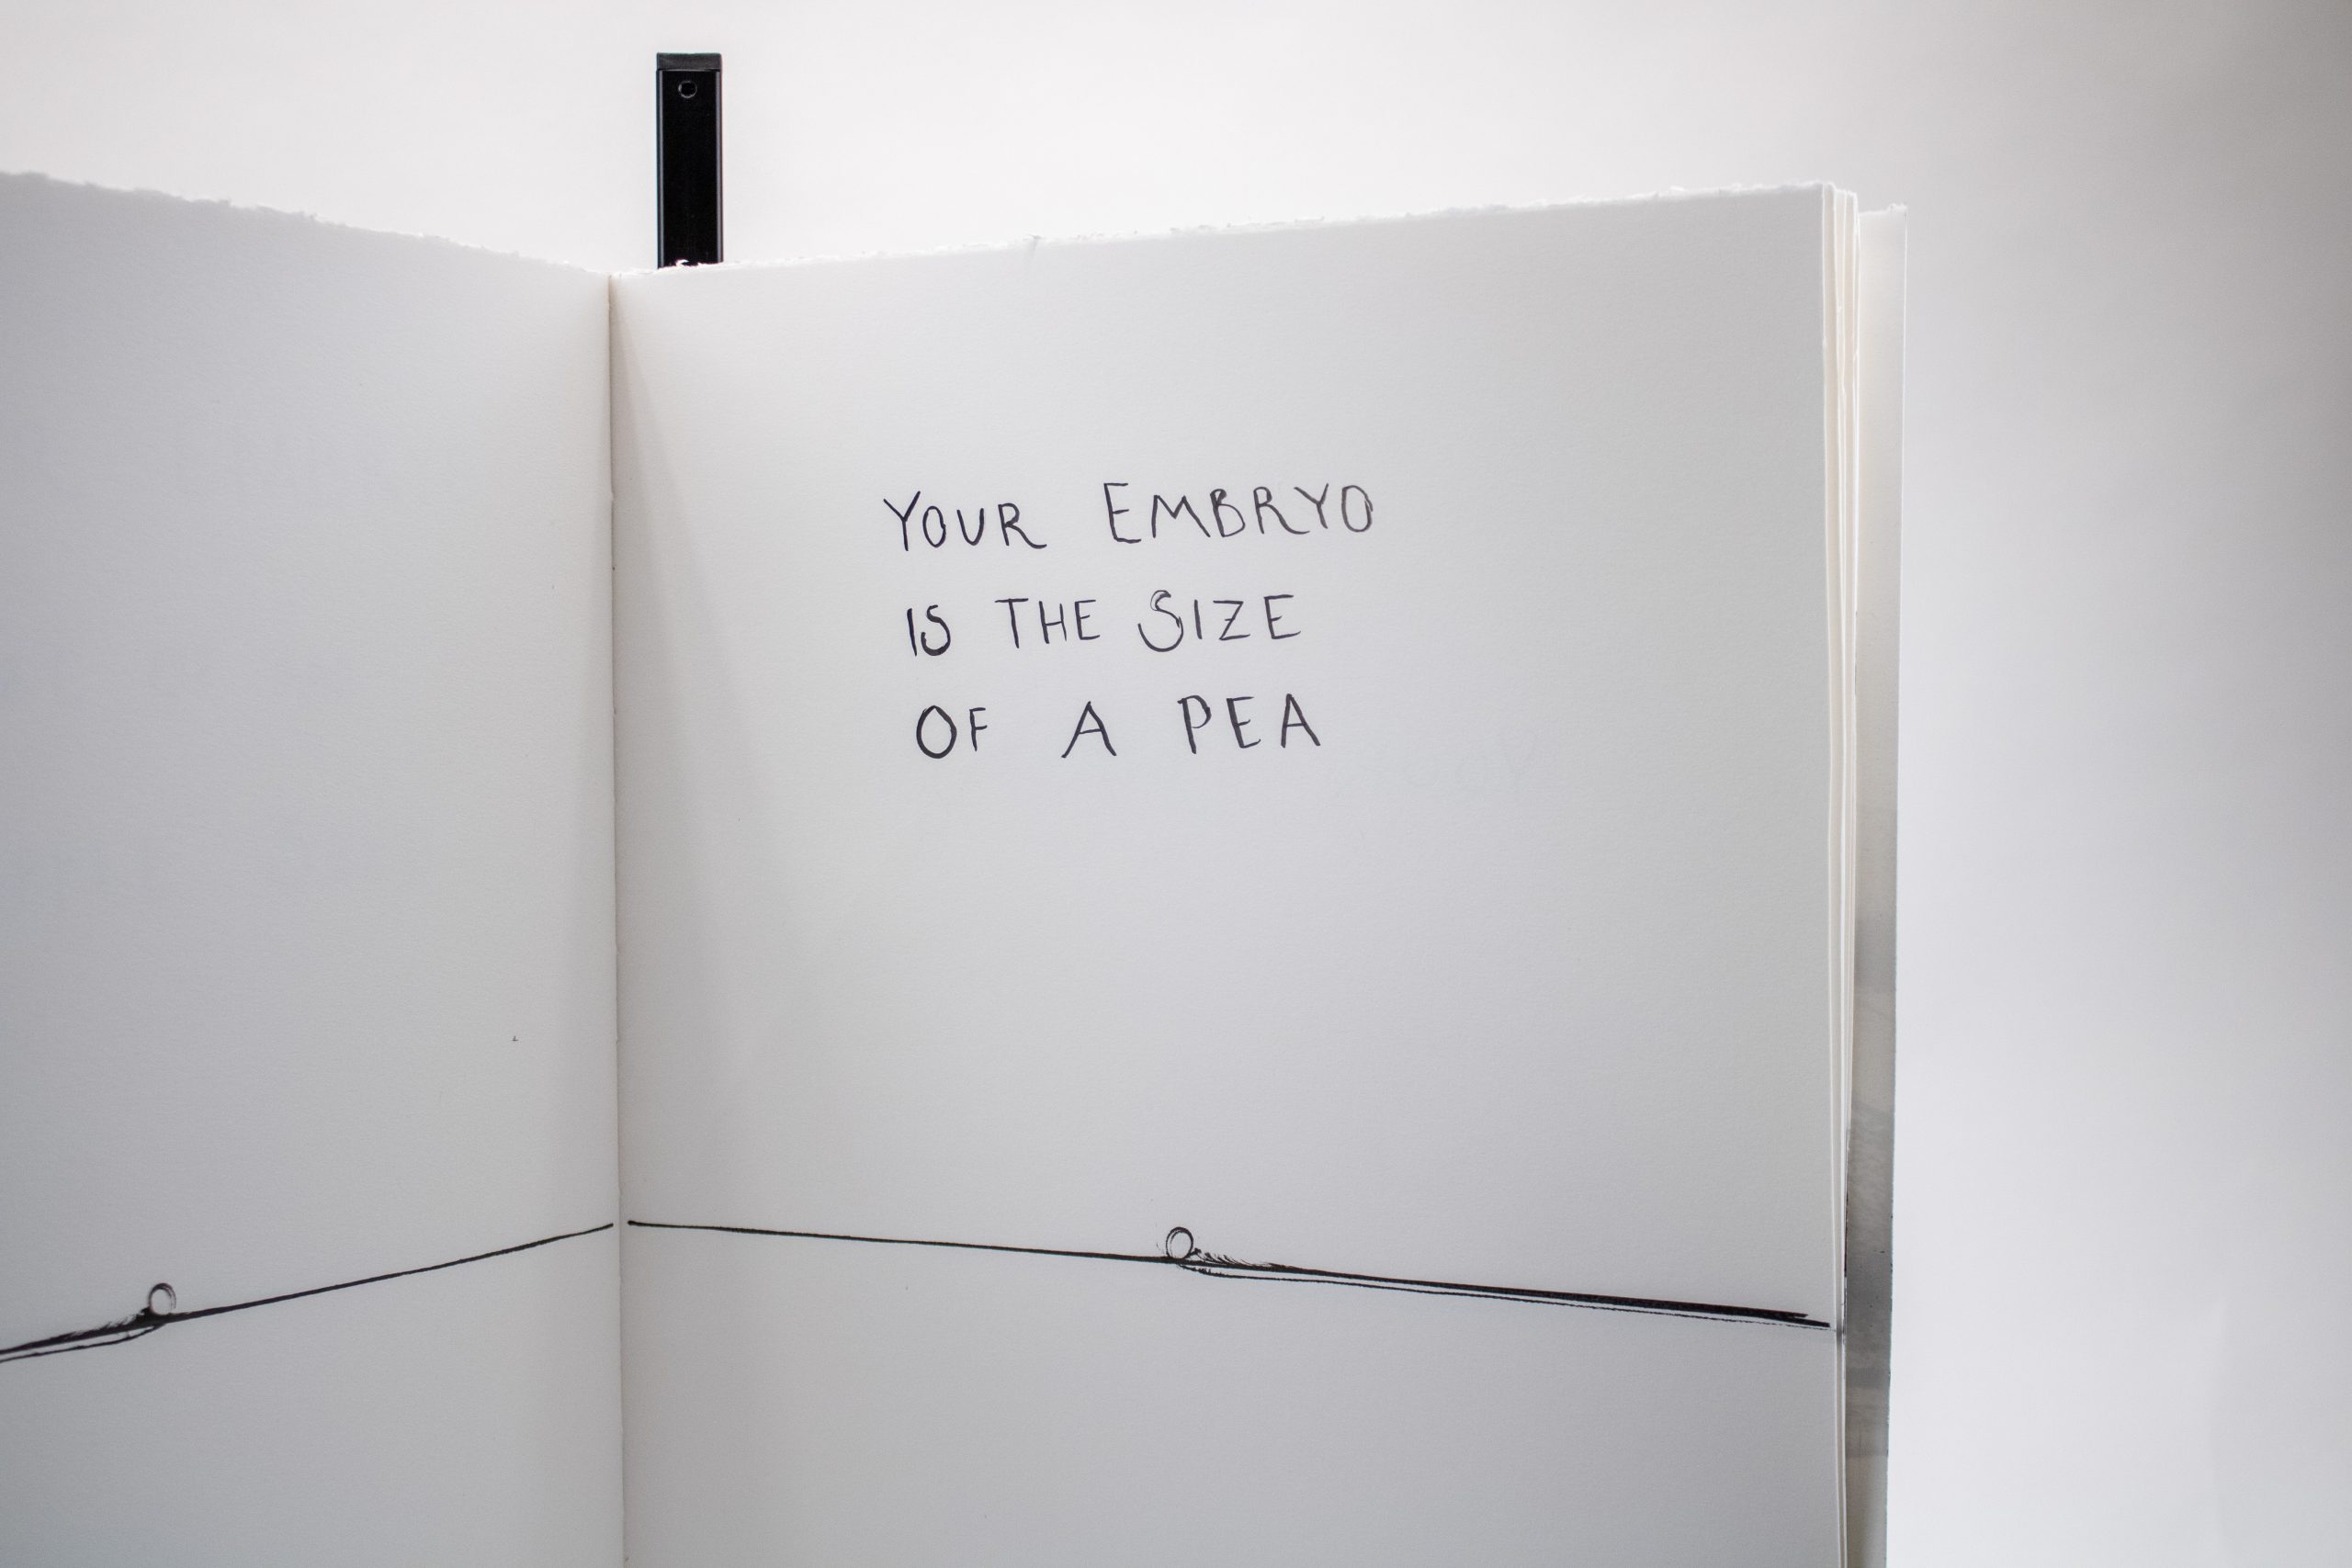 YOUR EMBRYO
IS THE SIZE
OF A PEA